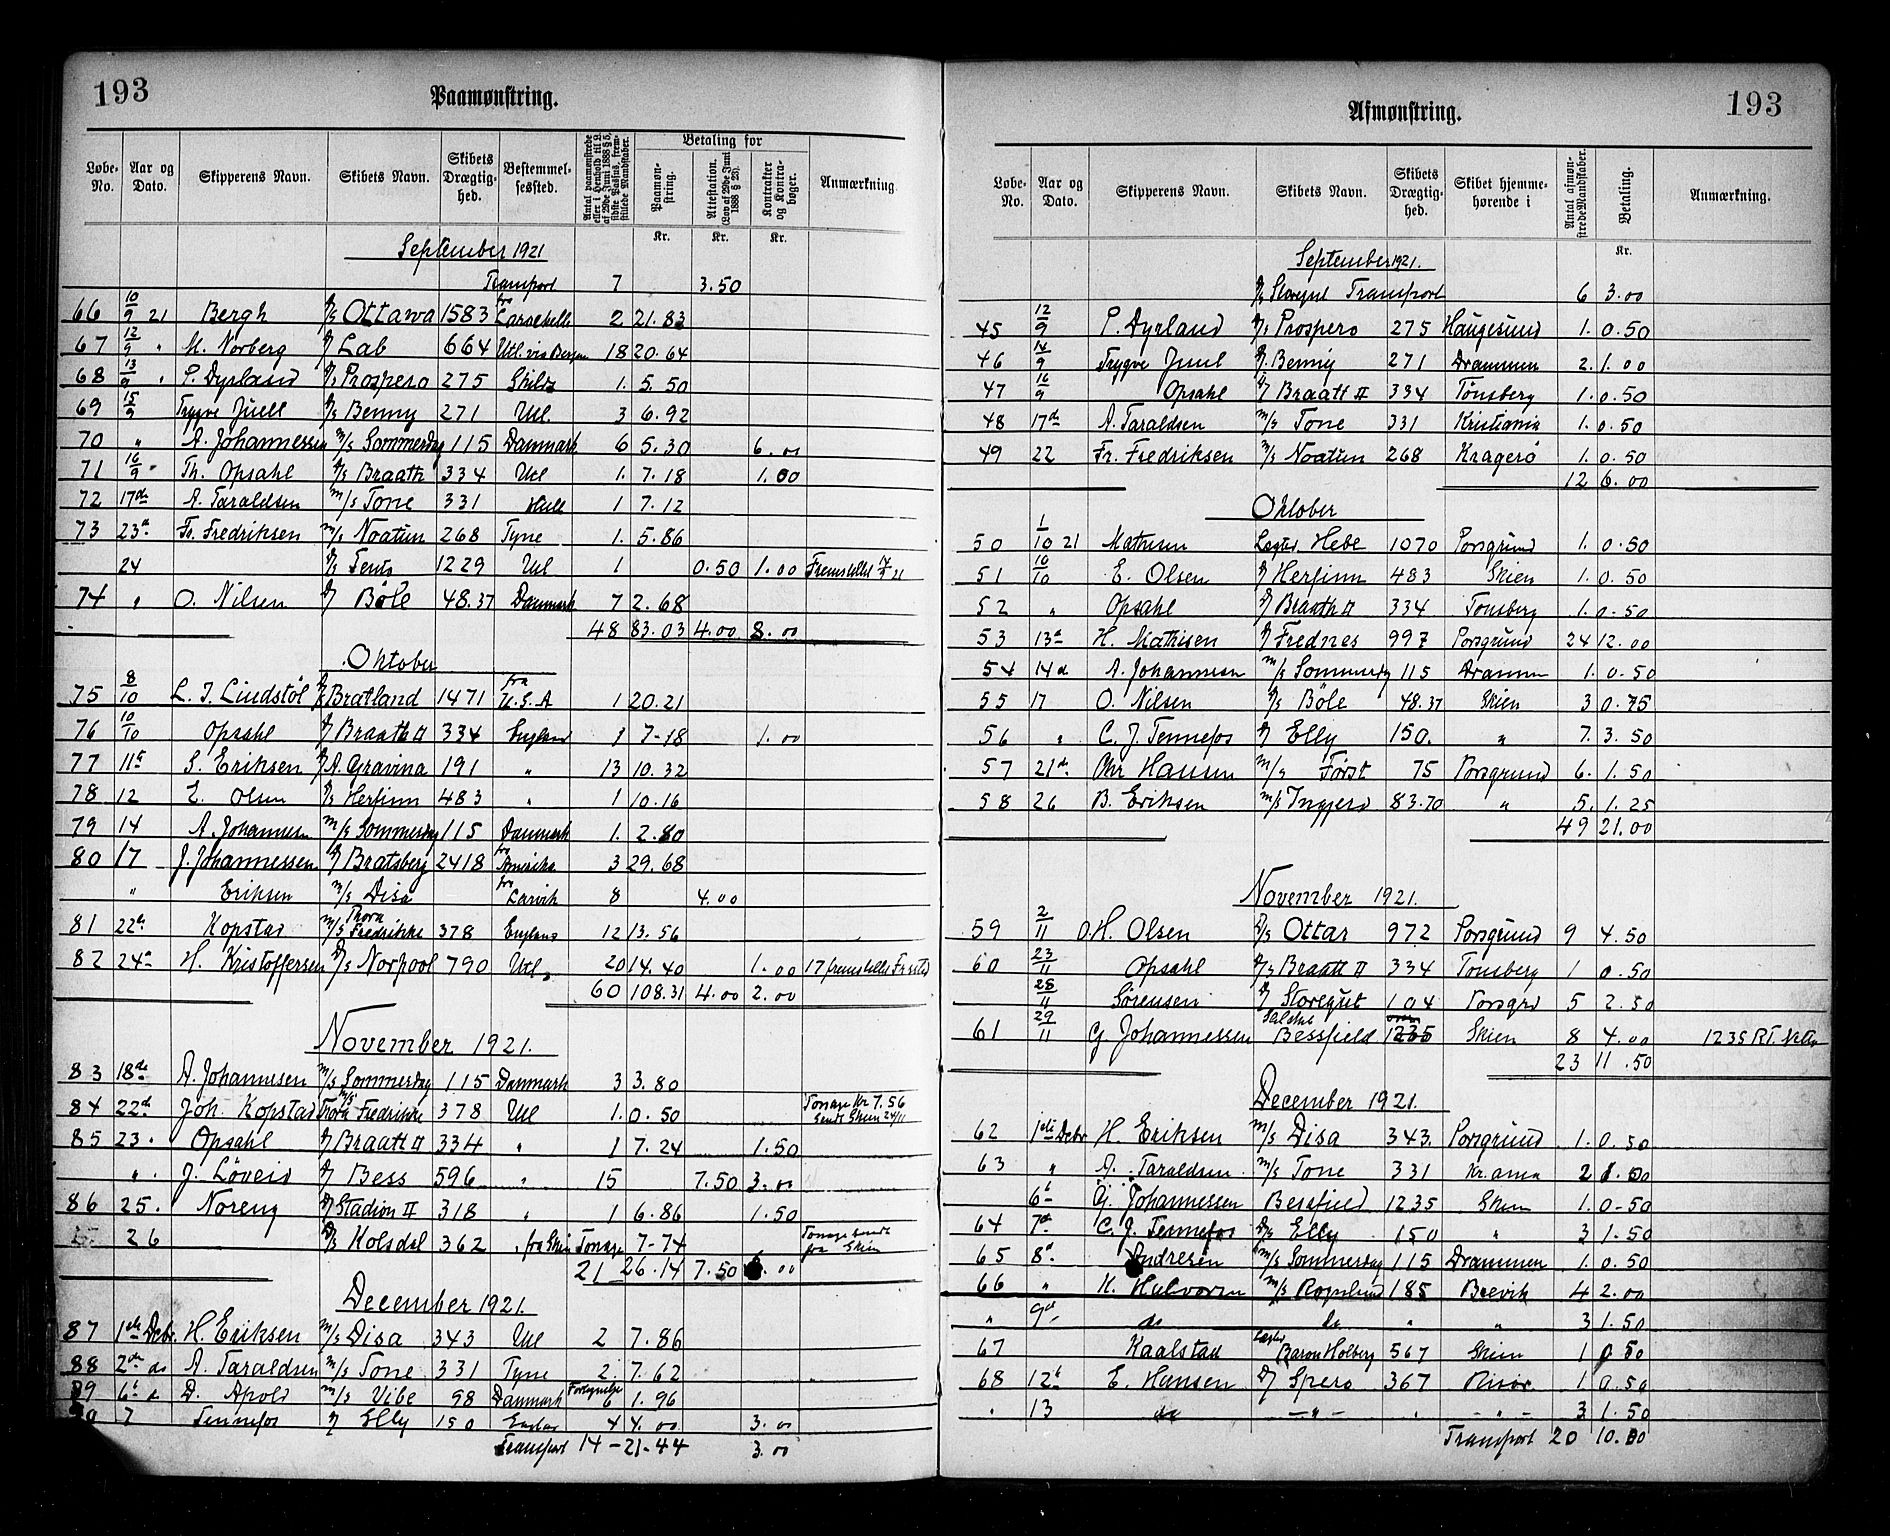 193
Paamønstring.
Løbe-No. Aar og Dato. Skipperens Navn. Skibets Navn. Skibets Drægtighed. Bestemmelsessted. Antal paamønstrede eller i Henhold til L. af 29de Juni 1888 § 5, sidste Passus, fremstillede Mandskaber. Betaling for Paamønstring. Attestation. (Lov af 29de Juni 1888 § 25). Kontrakter og Kontrabøger. Anmærkning.
Kr. Kr. Kr.
September 1921
Transport 7 3.50
66 10/9 21 Bergh D/S Ottawa 1583 fra 2 21.83
67 12/9 " M. Norberg D/ Lab 664 Utl. via Bergen 18 20.64
68 13/9 " P. Dyrland D/S Prospero 275 Skilds 1. 5.50
69 15/9 Trygve Juell D/S Benny 271 Utl. 3 6.92
70 " A. Johannessen M/S Sommerdag 115 Danmark 6 5.30 6.00
71 16/9 " Th. Opsahl D/S Braath 334 Utl 1. 7.18 1.00
72 17de A. Taraldsen M/S Tone 331 Hull 1 7.12
73 23d Fr. Fredriksen M/S Noatun 268 Tyne 1. 5.86
24 D/S Fents 1229 Utl 1 0.50 1.00 Fremstillet
74 " O. Nilsen D/ Bøle 48.37 Danmark 7 2.68
48 83.03 4.00 8.00
Oktober
75 8/10 L. T. Lindstøl D/S Bratland 1471 fra U.S.A 1 20.21
76 10/10 Opsahl D/ Braath II 334 England 1 7-18 1.00
77 11te S. Eriksen D/ A. Gravina 191 " 13 10.32
78 12 E. Olsen D/S Herfinn 483 " 1 10.16
79 14 A. Johannesen M/S Sommerdag 115 Danmark 1. 2.80
80 17 J. Johannessen D/ Bratsberg 2418 fra Amerika 3 29.68
" Eriksen M/S Disa fra Larvik 8 4.00
81 22de Kopstad M/S Thora Fredrikke 378 England 12 13.56
82 24de H. Kristoffersen D/S Norpool 790 Utl. 20 14.40 1.00 17 fremstilles
60 108.31 4.00 2.00
November 1921.
83 18de A. Johannesen M/S Sommerdag 115 Danmark 3 3.80
84 22de Joh. Kopstad M/S Thora Fredrikke 378 Utl 1. 0.50 Tonage Kr 7.56 Sendt Skien 24/11
85 23. Opsahl D/ Braatt II 334 " 1 7.24 1.50
" J. Løveid D/ Bess 596 " 15 7.50 3.00
86 25. Noreng D/ Stadion II 318 " 1 6.86 1.50
26 D/S Kolsdal 362 " fra Skien Tonage 7-74 Tonage sendt fra Skien
21 26.14 7.50 6.00
December 1921.
87 1ste Debr. H. Eriksen M/S Disa 343 Utl 2 7.86
88 2de do A. Taraldsen M/S Tone 331 Tyne 2. 7.62
89 6te d D. Apold M/S Vibe 98 Danmark 6 1.96
90 7 Tennefos D/ Elly 150 England 4 4.00 3.00
Transport 14 - 21-44 3.00
193
Afmønstring.
Løbe-No. Aar og Dato. Skipperens Navn. Skibets Navn. Skibets Drægtighed. Skibet hjemmehørende i Antal afmønstrede Mandskaber. Betaling. Anmærkning.
Kr.
September 1921.
D/S Storegut Transport 6 3.00
45 12/9 P. Dyrland D/S Prospero 275 Haugesund 1. 0.50
46 14/9 Trygve Juul D/ Benny 271 Drammen 2. 1.00
47 16/9 Opsahl D/ Braatt II 334 Tønsberg 1. 0.50
48 17de A. Taraldsen M/S Tone 331 Kristiania 1. 0.50
49 22 Fr. Fredriksen M/S Noatun 268 Kragerø 1. 0.50
12 6.00
Oktober
50 1/10 21 Mathisen Hebe 1070 Porsgrund 1. 0.50
51 10/10 E. Olsen D/ Herfinn 483 Skien 1. 0.50
52 " Opsahl D/ Braath II 334 Tønsberg 1. 0.50
53 13de H. Mathisen D/ Frednes 997 Porsgrund 24 12.00
54 14d A. Johannesen M/S Sommerdg 115 Drammen 1. 0.50
55 17 O. Nilsen D/S Bøle 48.37 Skien 3 0.75
56 " C. J. Tennefos D/ Elly 150. " 7. 3.50
57 21de Chr Hansen M/S Først 75 Porsgrund 6. 1.50
58 26 B. Eriksen M/S Ingjerd 83.70 " 5. 1.25
49 21.00
November 1921.
59 2/11 O.H. Olsen D/S Ottar 972 Porsgrund 9 4.50
60 23/11 Opsahl D/S Braatt II 334 Tønsberg 1 0.50
28/11 Sørensen D/ Storegut 104 Porsgrd 5 2.50
61 29/11 G. Johannessen Bessfield 1235 Skien 8 4.00 1235 R.T. Netto
23 11.50
December 1921.
62 1ste Debr H. Eriksen M/S Disa 343. Porsgrund 1. 0.50
63 " A. Taraldsen M/S Tone 331 Kr.ania 2 1.00
6te G. Johannessen Bessfield 1235 Skien 1. 0-50
64 7de C. J. Tennefos D/S Elly 150 " 3 1.50
65 8de Andresen M/S Sommerdag 115 Drammen 1. 0.50
66 " K. Halvorsen M/S 185 Brevik 4 2.00
" 9de do do " " 3 1.50
67 Kaalstad Baron Holberg 567 Skien 1 0.50
68 12te E. Hansen D/ Spero 367 Risør 1. 0.50
" 13 do - " - " - " - 3 1.50
Transport 20 10.00